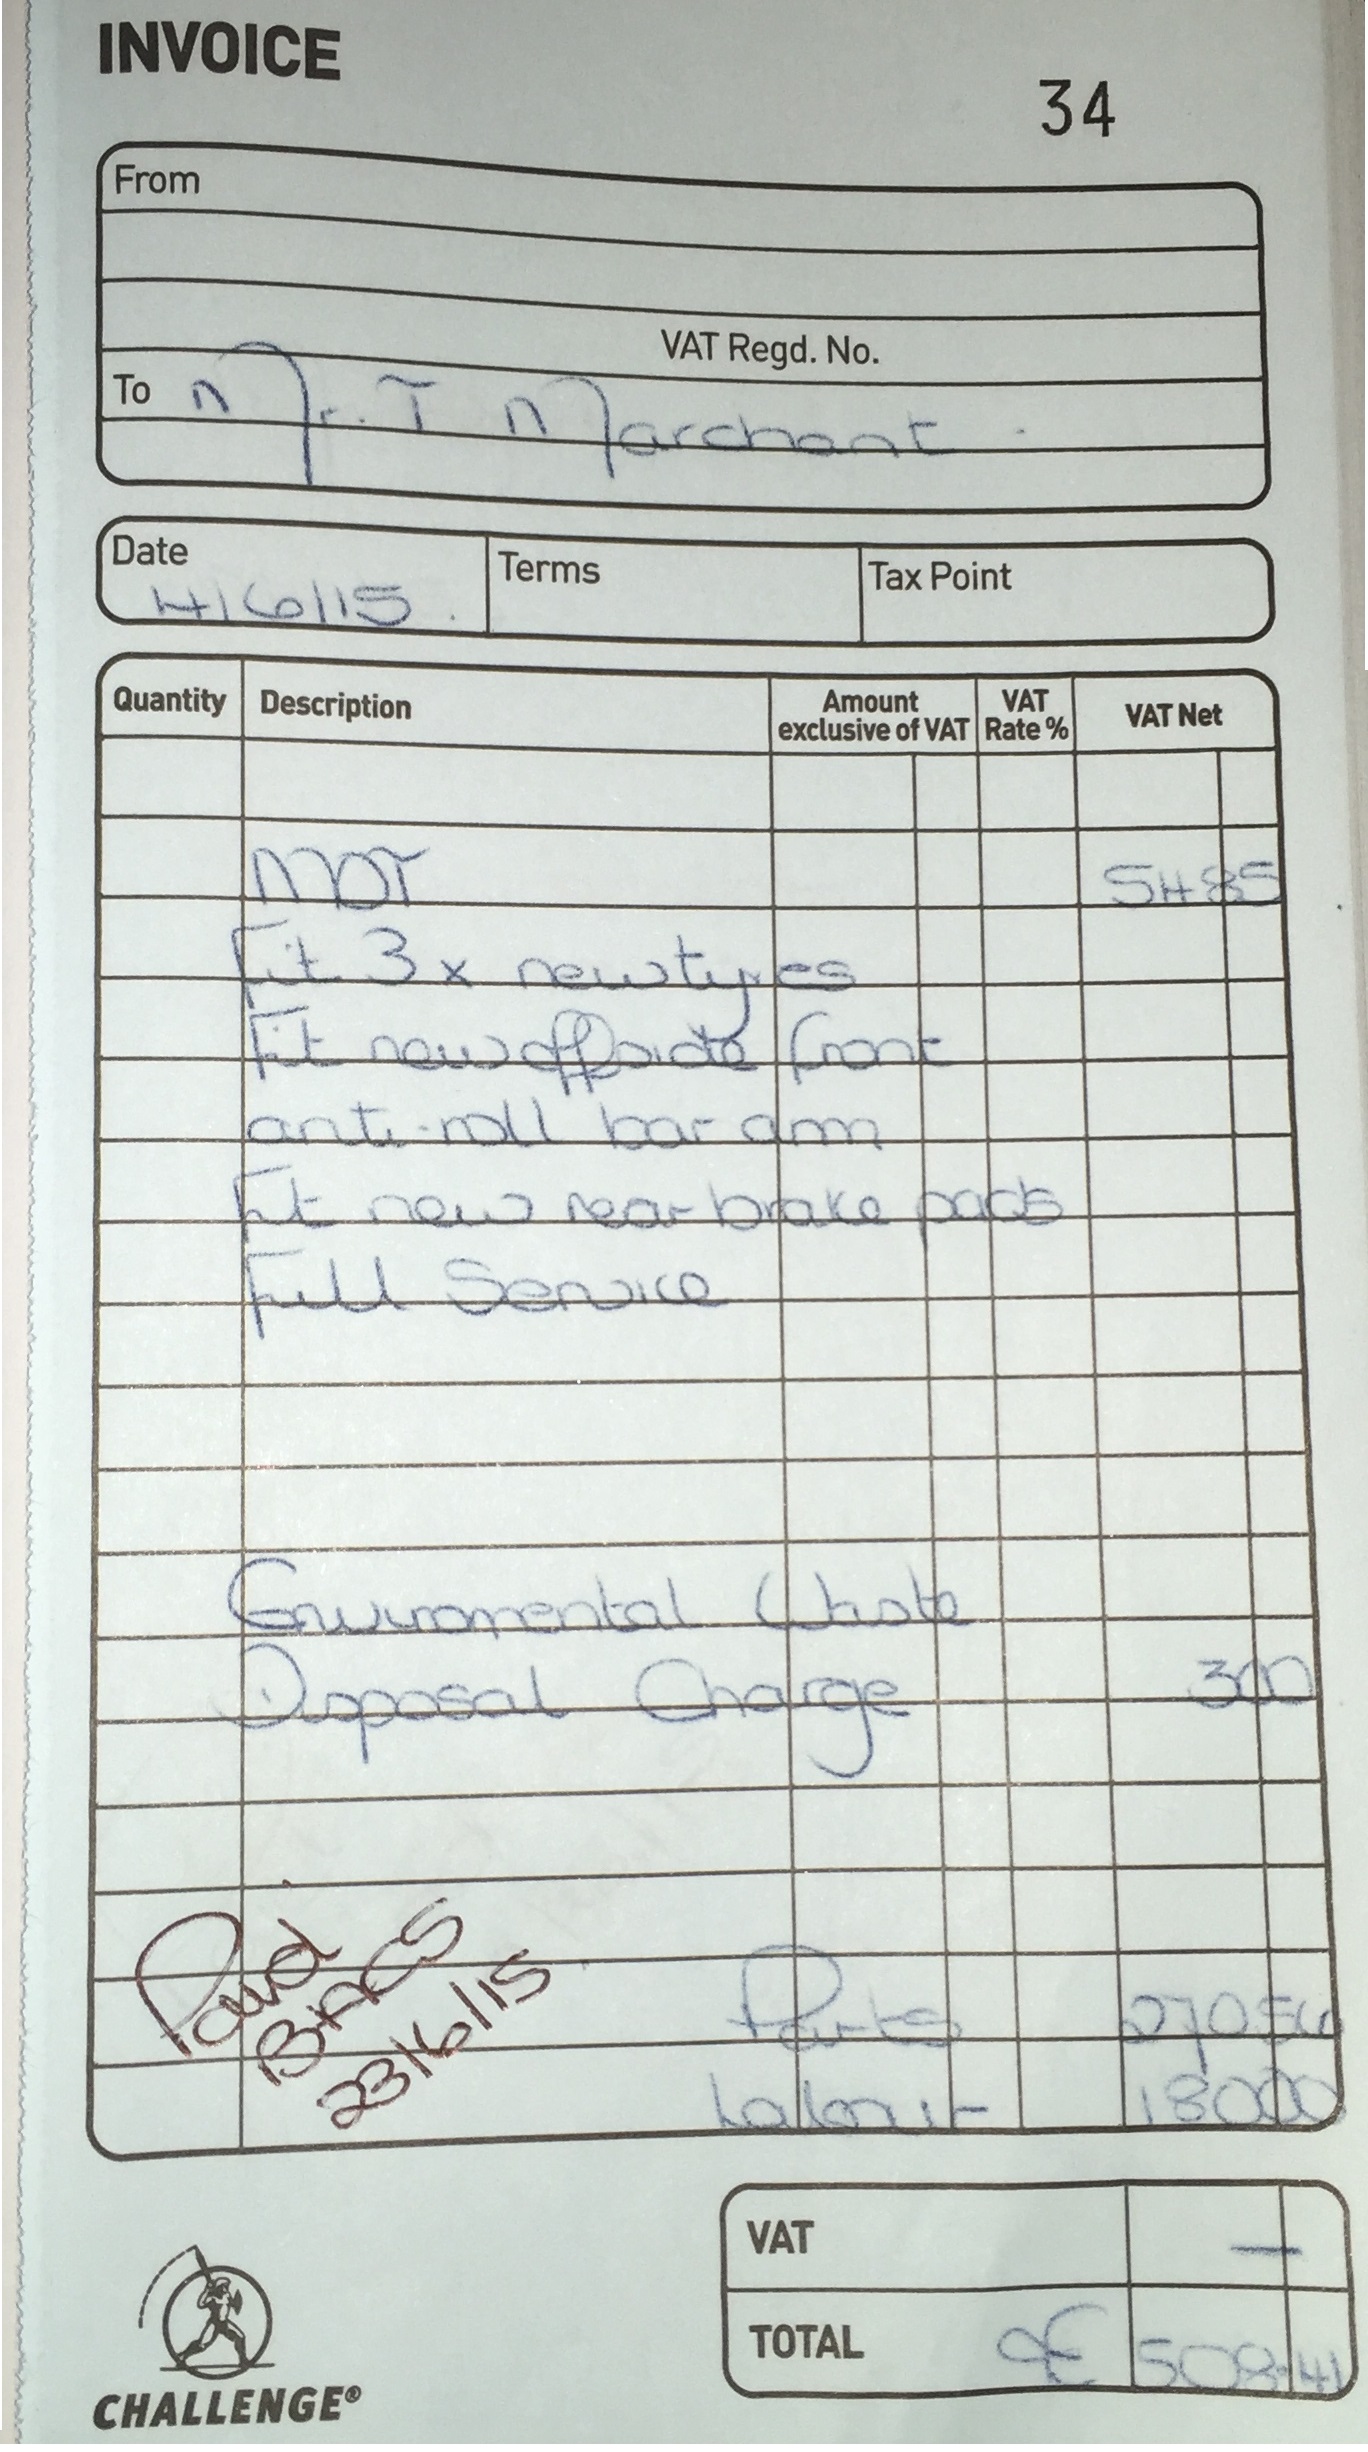 INVOICE
34
From
VAT Regd. No.
To Mr. T Marchant
Date
Terms
Tax Point
4/6/15
Quantity Description Amount exclusive of VAT VAT Rate % VAT Net
MOT 54 85
Fit 3 x new tyres
Fit new offside front
anti-roll bar arm
Fit new rear brake pads
Full Service
Enviromental Waste
Disposal Charge 3 00
Paid
BACS
23/6/15
Parts 270 56
Labour 180 00
VAT —
TOTAL £ 508.41
CHALLENGE®